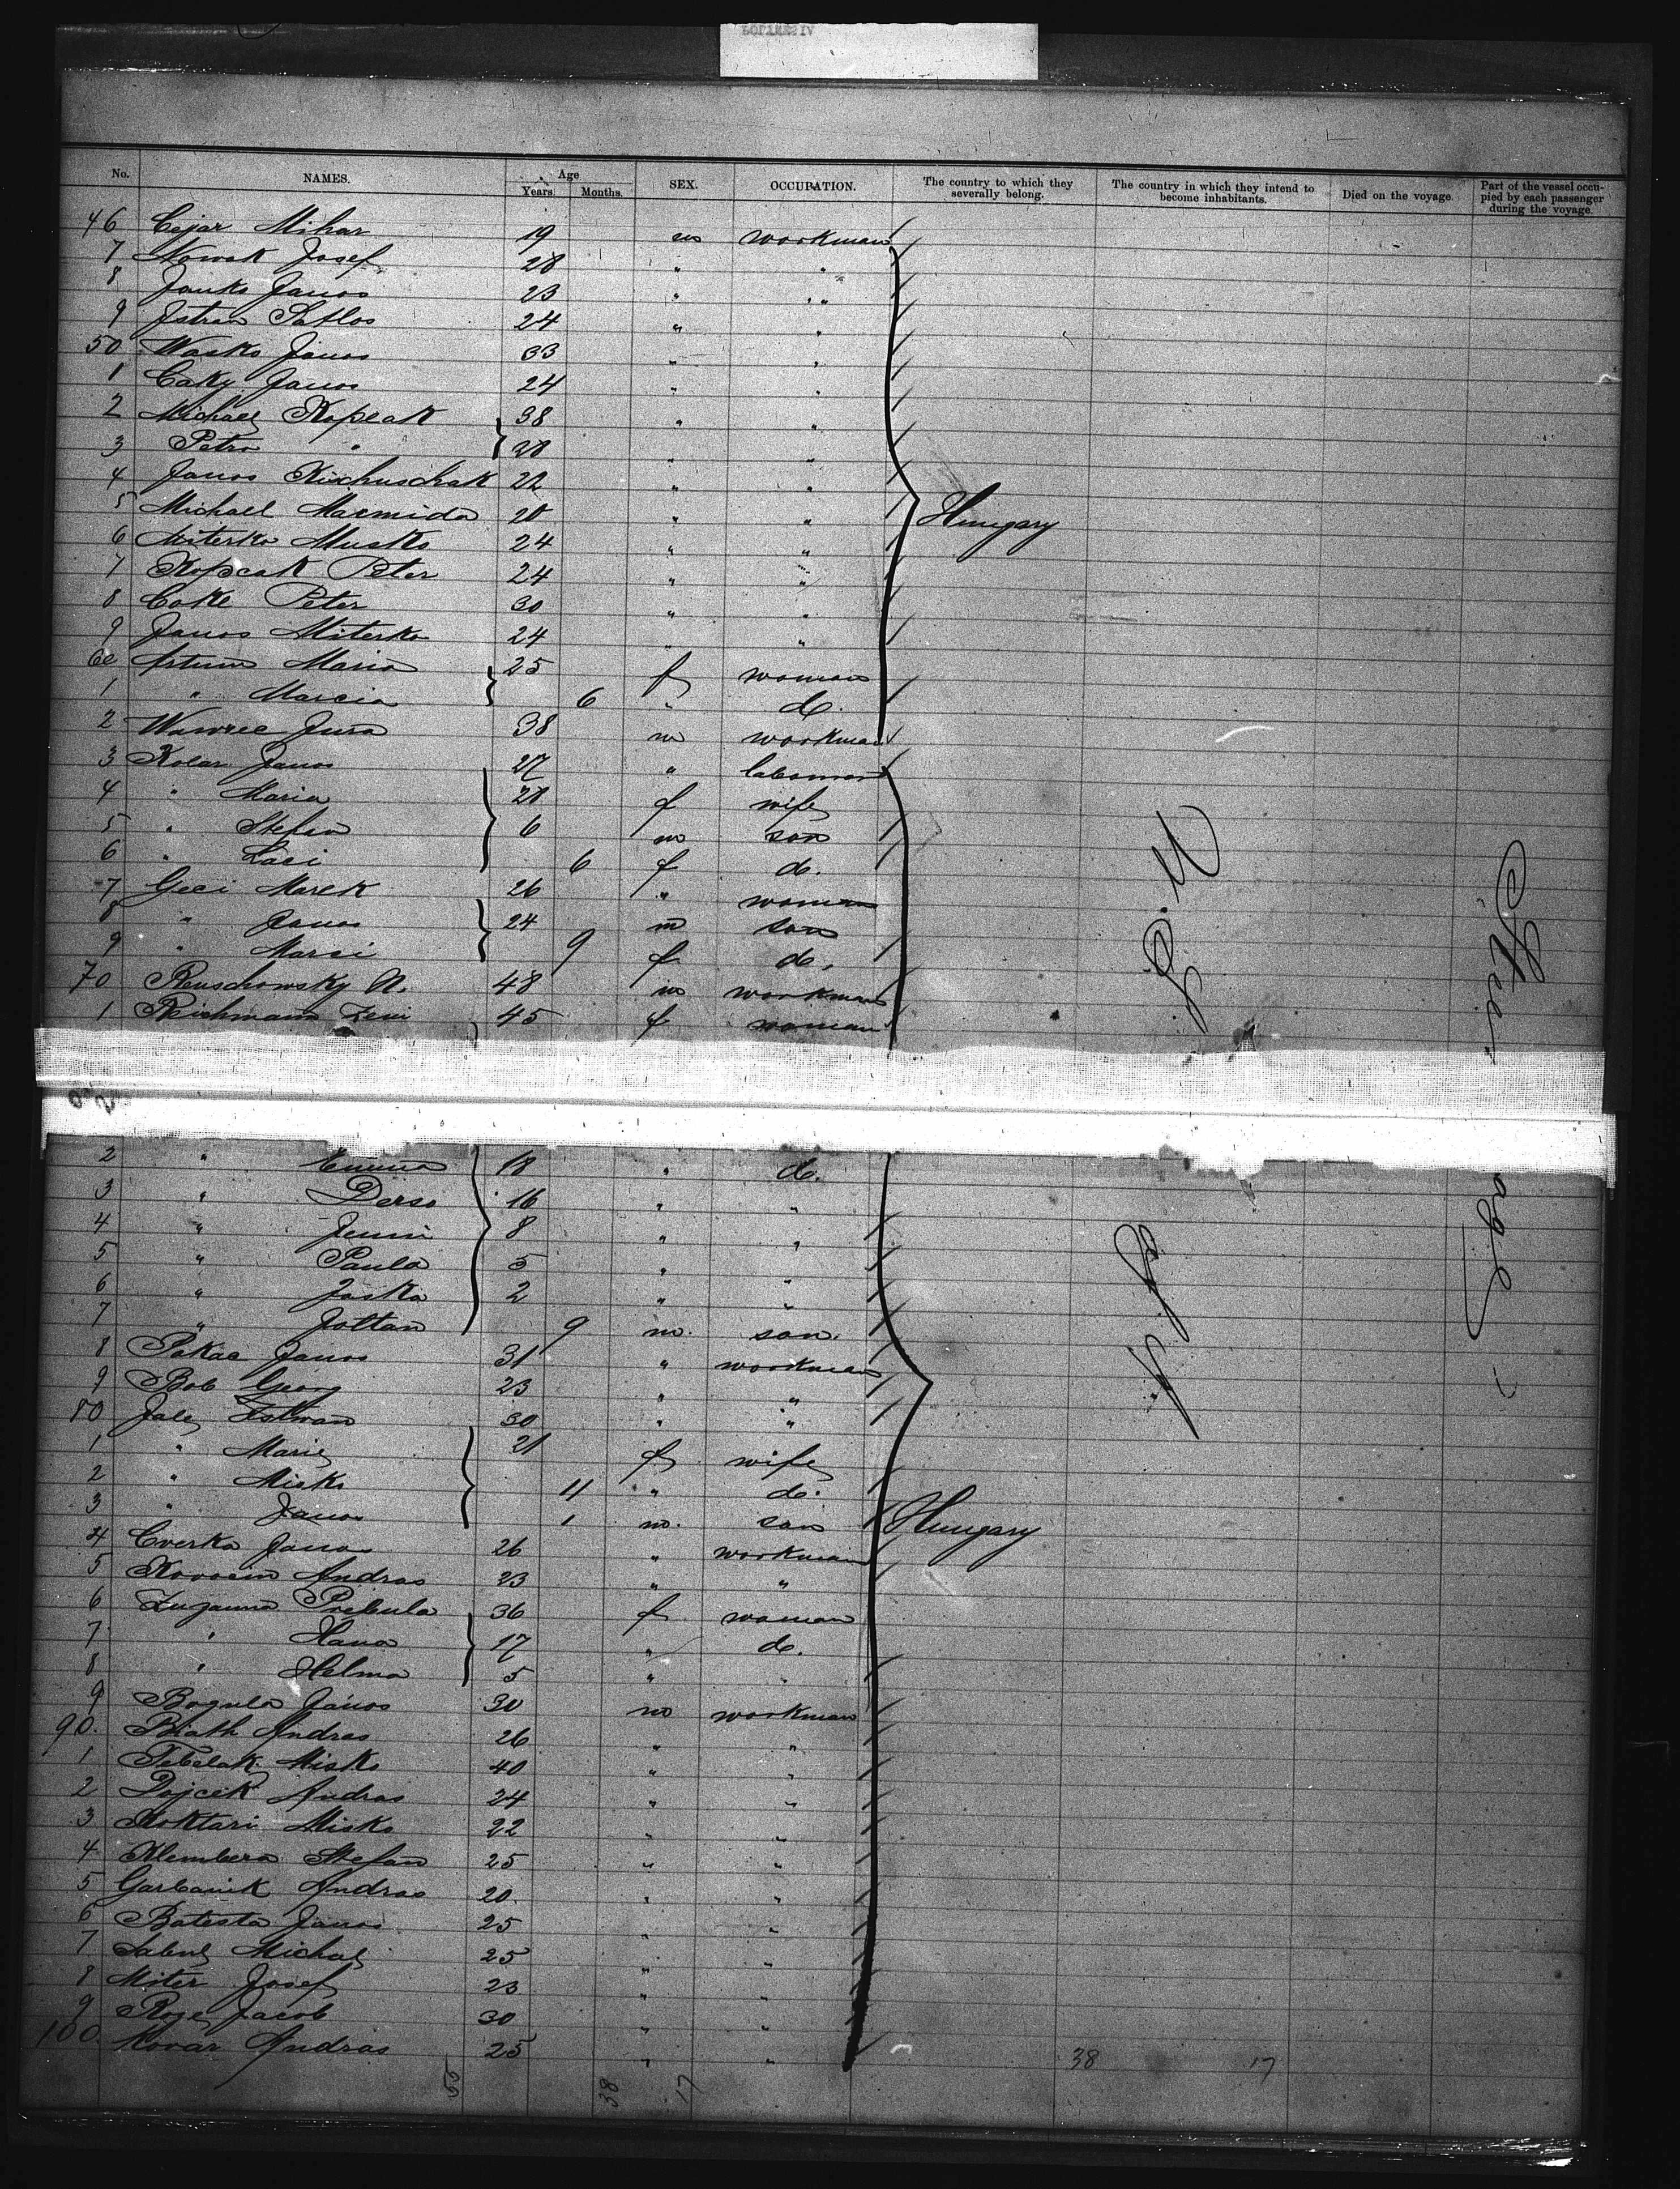 No. NAMES. Age Years. Months. SEX. OCCUPATION. The country to which they severally belong. The country in which they intend to become inhabitants. Died on the voyage. Part of the vessel occupied by each passenger during the voyage.
46 Cejar Mihar 19 m workman
7 Nowak Josef 28 " "
8 Janko Janos 23 " "
9 Istran 24 " "
50 Wasko Janos 33 " "
1 Caky Janos 24 " "
2 Michael Kopcak 38 " "
3 Petro " 28 " "
4 Janos Kischuschak 22 " "
5 Michael Macmida 20 " " Hungary
6 Miterko Musko 24 " "
7 Kopcak Peter 24 " "
8 Cake Peter 30 " "
9 Janos Miterko 24 " "
60 Maria 25 f woman
1 " Marcia 6 " do.
2 Wawrec Jura 38 m workman
3 Kolar Janos 27 " laborman
4 " Maria 28 f wife
5 " Stefan 6 m son
6 " Laci 6 f do.
7 Geci Marek 26 " woman
8 " Janos 24 m son
9 " Marci 9 f do.
70 Reuschowsky N. 48 m workman
1 Reichmann Zeni 45 f woman
2 " Emma 18 " do.
3 " Derso 16 " "
4 " Jenni 8 " "
5 " Paula 5 " "
6 " Joska 2 " "
7 " Joltan 9 m. son.
8 Pakac Janos 31 " workman
9 Bob Georg 23 " "
80 Jaley Istwan 30 " "
1 " Marie 21 f wife
2 " Misko 11 " do.
3 " Janos 1 m. son Hungary
4 Cverka Janos 26 " workman
5 Kovacin Andras 23 " "
6 Zuzanna Prebula 36 f woman
7 " Hana 17 " do.
8 " Helma 5 " "
9 Bogula Janos 30 m workman
90. Biath Andras 26 " "
1 Tebelak Misko 40 " "
2 Pojcik Andras 24 " "
3 Koktari Misko 22 " "
4 Klembera Stefan 25 " "
5 Garbanik Andras 20. " "
6 Batesta Janos 25 " "
7 Michal 25 " "
8 Miter Josef 23 " "
9 Roze Jacob 30 " "
100. Kovar Andras 25 " "
38 17
55 38 17